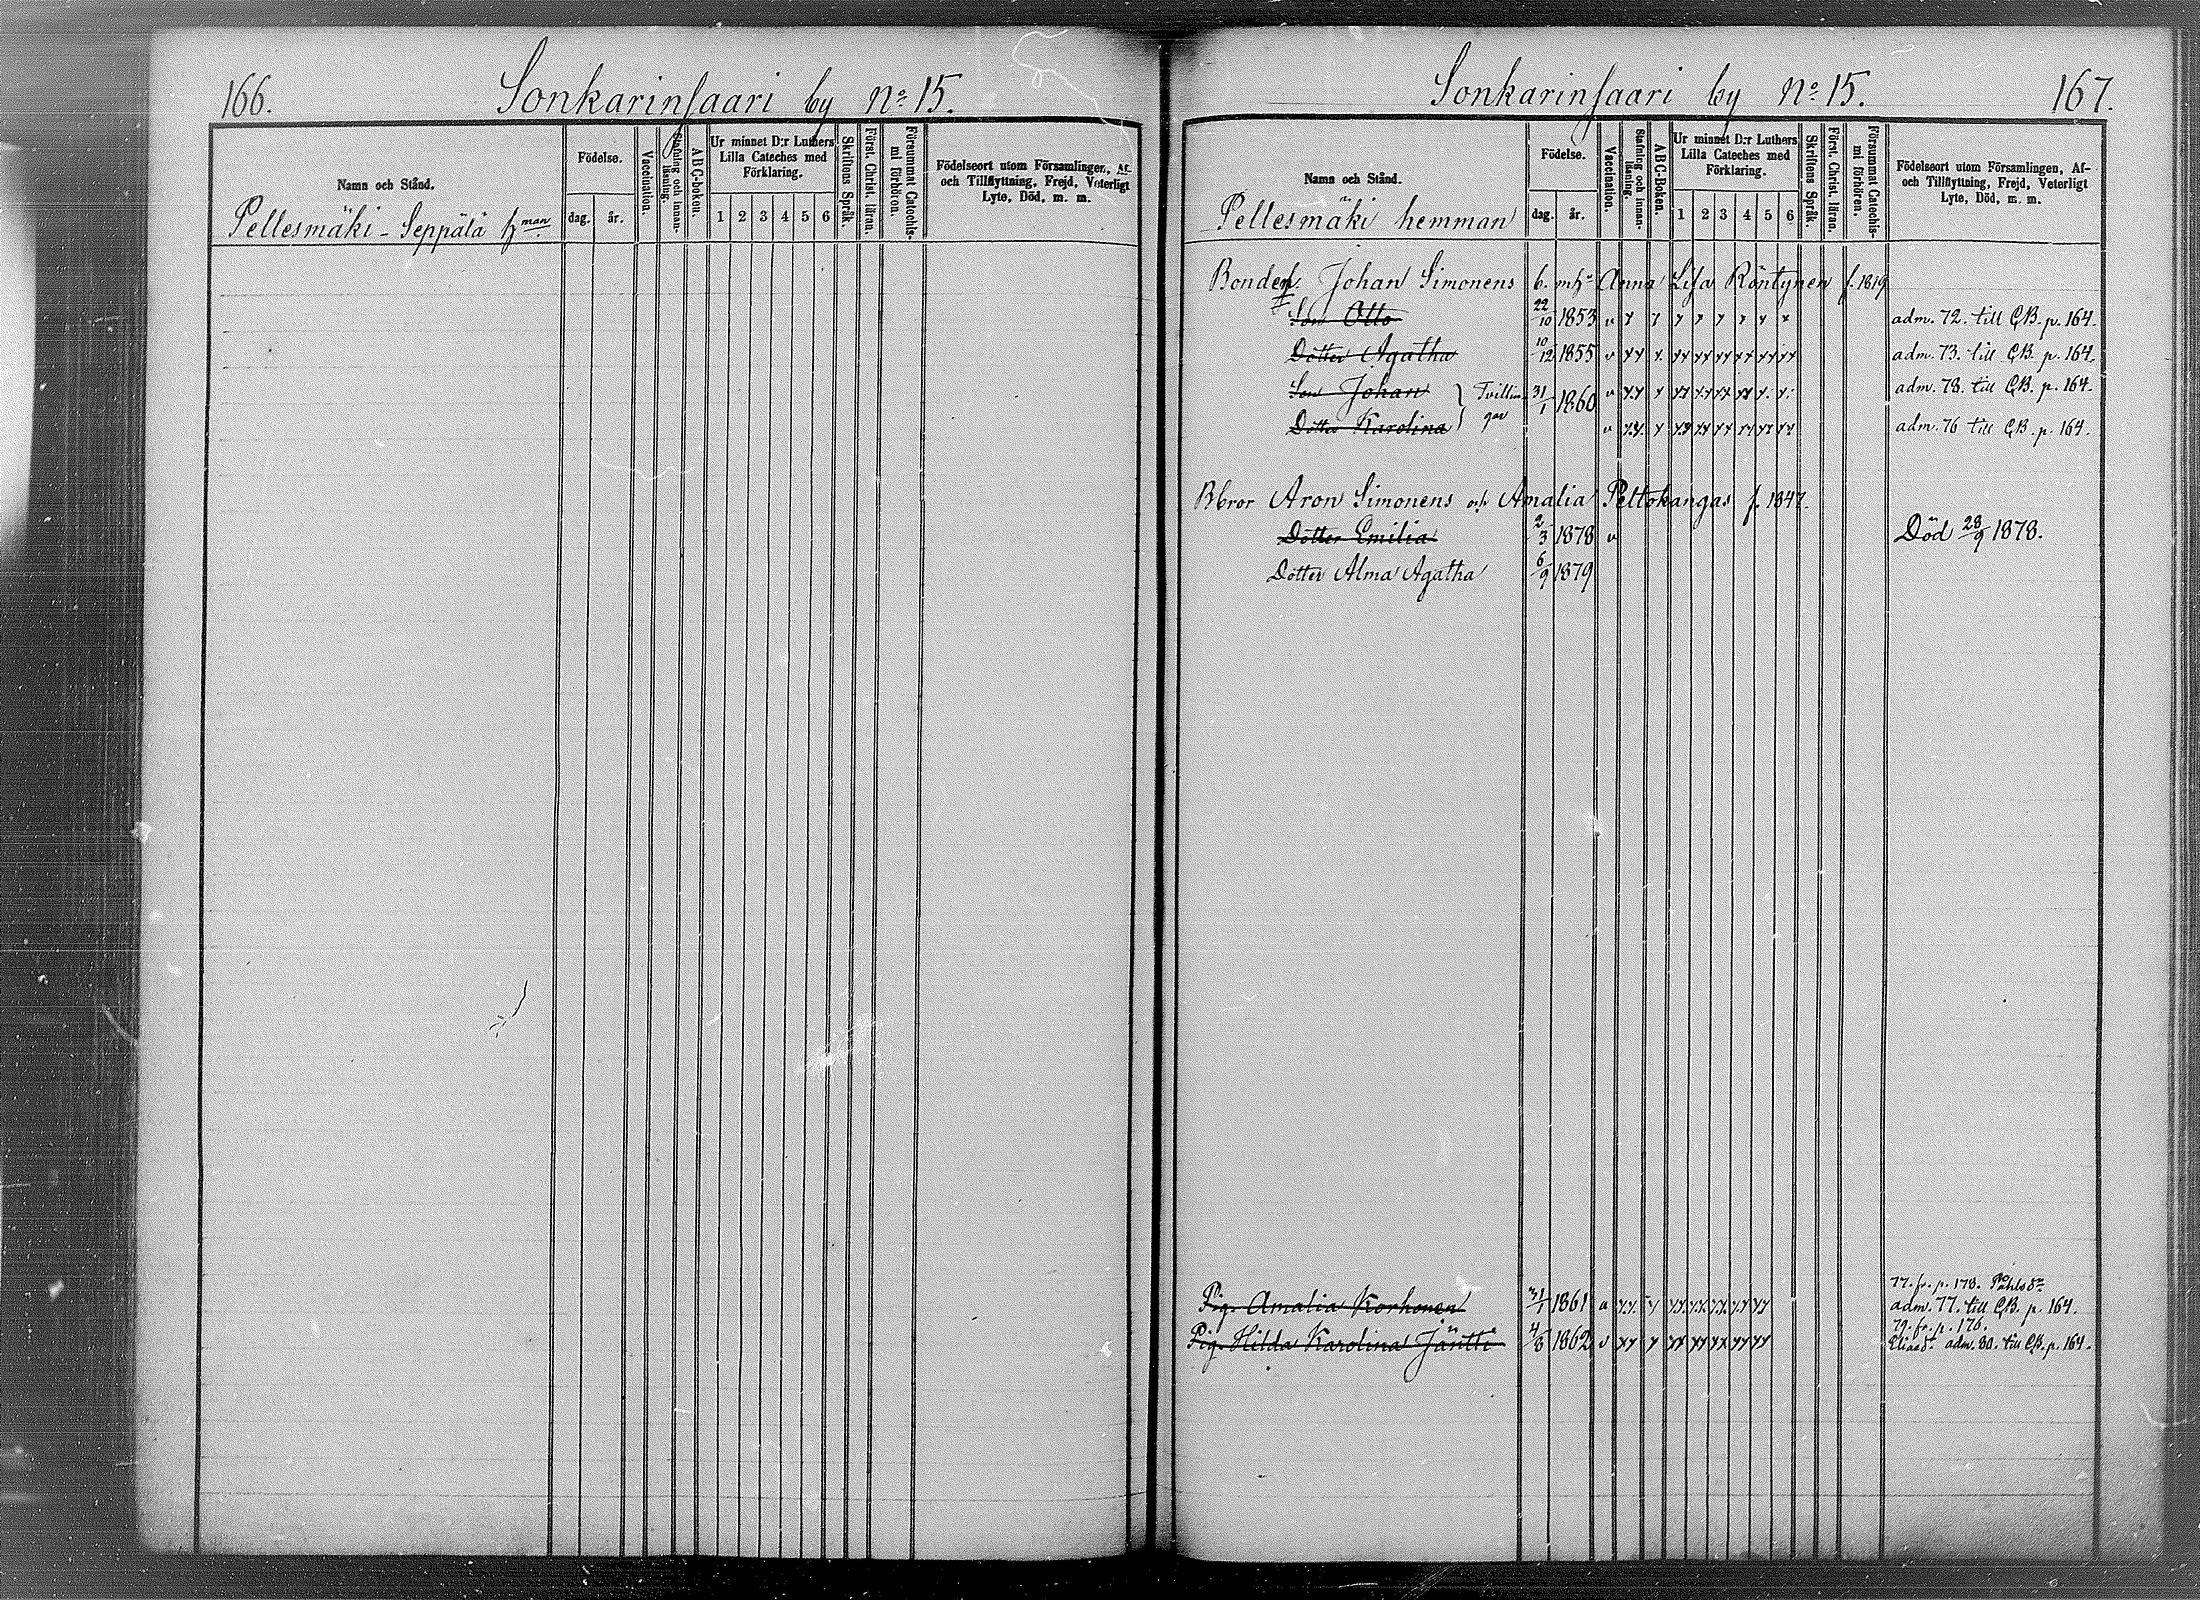 166.
Sonkarinsaari by No 15.
Namn och Stånd.
Födelse.
dag. år.
Vaccination.
Stafning och innan-läsning.
ABC-boken.
Ur minnet D:r Luthers
Lilla Cateches med
Förklaring.
1 2 3 4 5 6
Skriftens Språk.
Först. Christ. läran.
Försummat Catechis-mi förhören.
Födelseort utom Församlingen, Af-
och Tillflyttning, Frejd, Veterligt
Lyte, Död, m. m.
Pellesmäki - Seppälä hman
Sonkarinsaari by No 15.
167.
Namn och Stånd.
Födelse.
dag. år.
Vaccination.
Stafning och innan-läsning.
ABC-Boken.
Ur minnet D:r Luthers
Lilla Cateches med
Förklaring.
1 2 3 4 5 6
Skriftens Språk.
Först. Christ. läran.
Försummat Catechis-mi förhören.
Födelseort utom Församlingen, Af-
och Tillflyttning, Frejd, Veterligt
Lyte, Död, m. m.
Pellesmäki hemman
Bonden Johan Simonens b. m h:u Anna Lisa Röntynen f. 1819
Son Otto 22/10 1853 v adm. 72. till CB. p. 164.
Dotter Agatha 10/12 1855 v adm. 73. till CB. p. 164.
Son Johan } Tvillin- 31/1 1860 v adm. 78. till CB. p. 164.
Dotter Karolina } gar v adm. 76 till CB. p. 164.
Bbror Aron Simonens och Amalia Peltokangas f. 1847.
Dotter Emilia 2/3 1878 v Död 28/9 1878.
Dotter Alma Agatha 6/9 1879
77. fr. p. 178.
Pig. Amalia Korhonen 31/1 1861 adm. 77. till CB. p. 164.
79. fr. p. 176.
Pig. Hilda Karolina Jäntti 4/8 1862 v Eliasd:r adm. 80. till CB. p. 164.